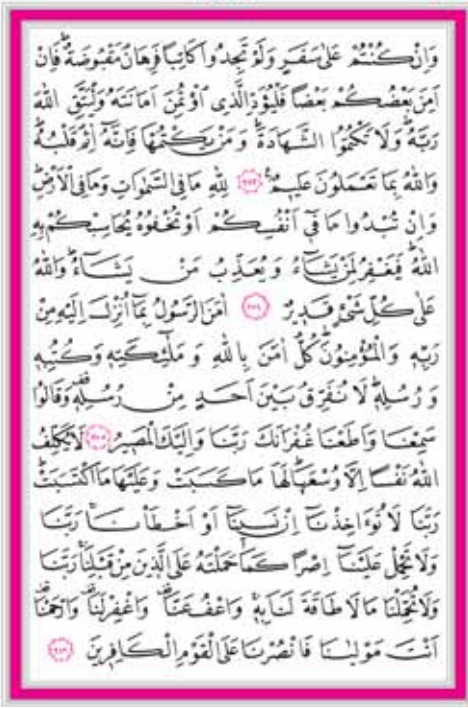 وَاِنْ كُنْتُمْ عَلٰى سَفَرٍ وَلَمْ تَجِدُوا كَاتِبًا فَرِهَانٌ مَقْبُوضَةٌ فَاِنْ
اَمِنَ بَعْضُكُمْ بَعْضًا فَلْيُؤَدِّ الَّذِي اؤْتُمِنَ اَمَانَتَهُ وَلْيَتَّقِ اللّٰهَ
رَبَّهُ وَلَا تَكْتُمُوا الشَّهَادَةَ وَمَنْ يَكْتُمْهَا فَاِنَّهُ اٰثِمٌ قَلْبُهُ
وَاللّٰهُ بِمَا تَعْمَلُونَ عَلِيمٌ ﴿٢٨٣﴾ لِلّٰهِ مَا فِي السَّمٰوَاتِ وَمَا فِي الْاَرْضِ
وَاِنْ تُبْدُوا مَا فِي اَنْفُسِكُمْ اَوْ تُخْفُوهُ يُحَاسِبْكُمْ بِهِ
اللّٰهُ فَيَغْفِرُ لِمَنْ يَشَاءُ وَيُعَذِّبُ مَنْ يَشَاءُ وَاللّٰهُ
عَلٰى كُلِّ شَيْءٍ قَدِيرٌ ﴿٢٨٤﴾ اٰمَنَ الرَّسُولُ بِمَا اُنْزِلَ اِلَيْهِ مِنْ
رَبِّهِ وَالْمُؤْمِنُونَ كُلٌّ اٰمَنَ بِاللّٰهِ وَمَلٰئِكَتِهِ وَكُتُبِهِ
وَرُسُلِهِ لَا نُفَرِّقُ بَيْنَ اَحَدٍ مِنْ رُسُلِهِ وَقَالُوا
سَمِعْنَا وَاَطَعْنَا غُفْرَانَكَ رَبَّنَا وَاِلَيْكَ الْمَصِيرُ ﴿٢٨٥﴾ لَا يُكَلِّفُ
اللّٰهُ نَفْسًا اِلَّا وُسْعَهَا لَهَا مَا كَسَبَتْ وَعَلَيْهَا مَا اكْتَسَبَتْ
رَبَّنَا لَا تُؤَاخِذْنَا اِنْ نَسِينَا اَوْ اَخْطَأْنَا رَبَّنَا
وَلَا تَحْمِلْ عَلَيْنَا اِصْرًا كَمَا حَمَلْتَهُ عَلَى الَّذِينَ مِنْ قَبْلِنَا رَبَّنَا
وَلَا تُحَمِّلْنَا مَا لَا طَاقَةَ لَنَا بِهِ وَاعْفُ عَنَّا وَاغْفِرْ لَنَا وَارْحَمْنَا
اَنْتَ مَوْلٰينَا فَانْصُرْنَا عَلَى الْقَوْمِ الْكَافِرِينَ ﴿٢٨٦﴾